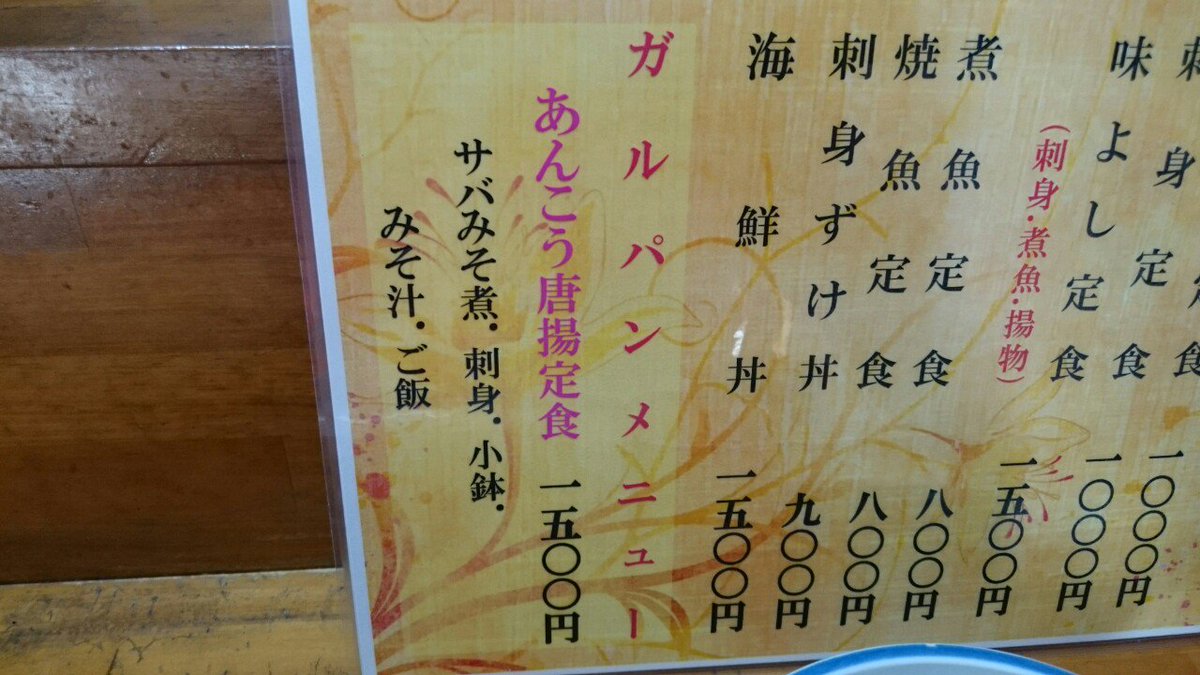 食 一〇〇〇円
刺身定食 一〇〇〇円
味よし定食 一五〇〇円
（刺身・煮魚・揚物）
煮魚定食 八〇〇円
焼魚定食 八〇〇円
刺身ずけ丼 九〇〇円
海鮮丼 一五〇〇円
ガルパンメニュー
あんこう唐揚定食 一五〇〇円
サバみそ煮．刺身．小鉢．
みそ汁．ご飯